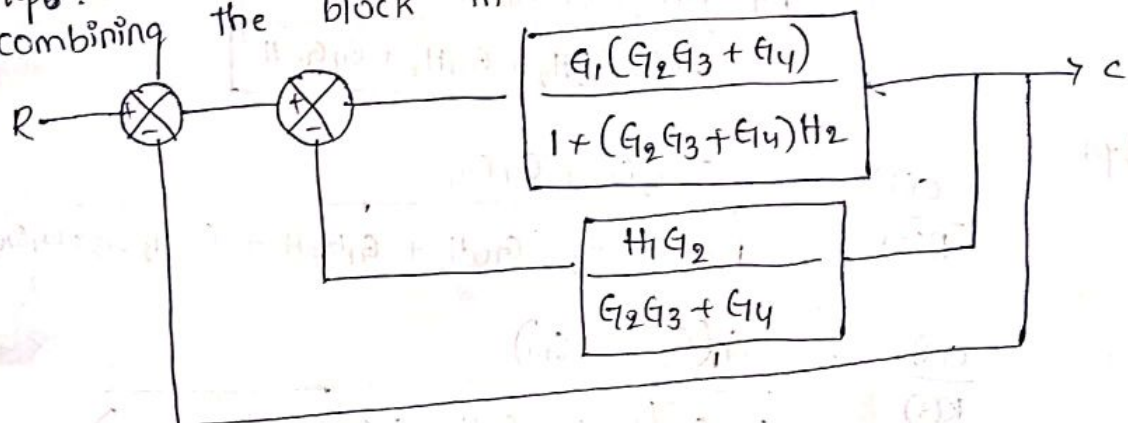 combining the block
R + - + - G₁(G₂G₃ + G₄) → C
1 + (G₂G₃ + G₄)H₂
H₁G₂
G₂G₃ + G₄